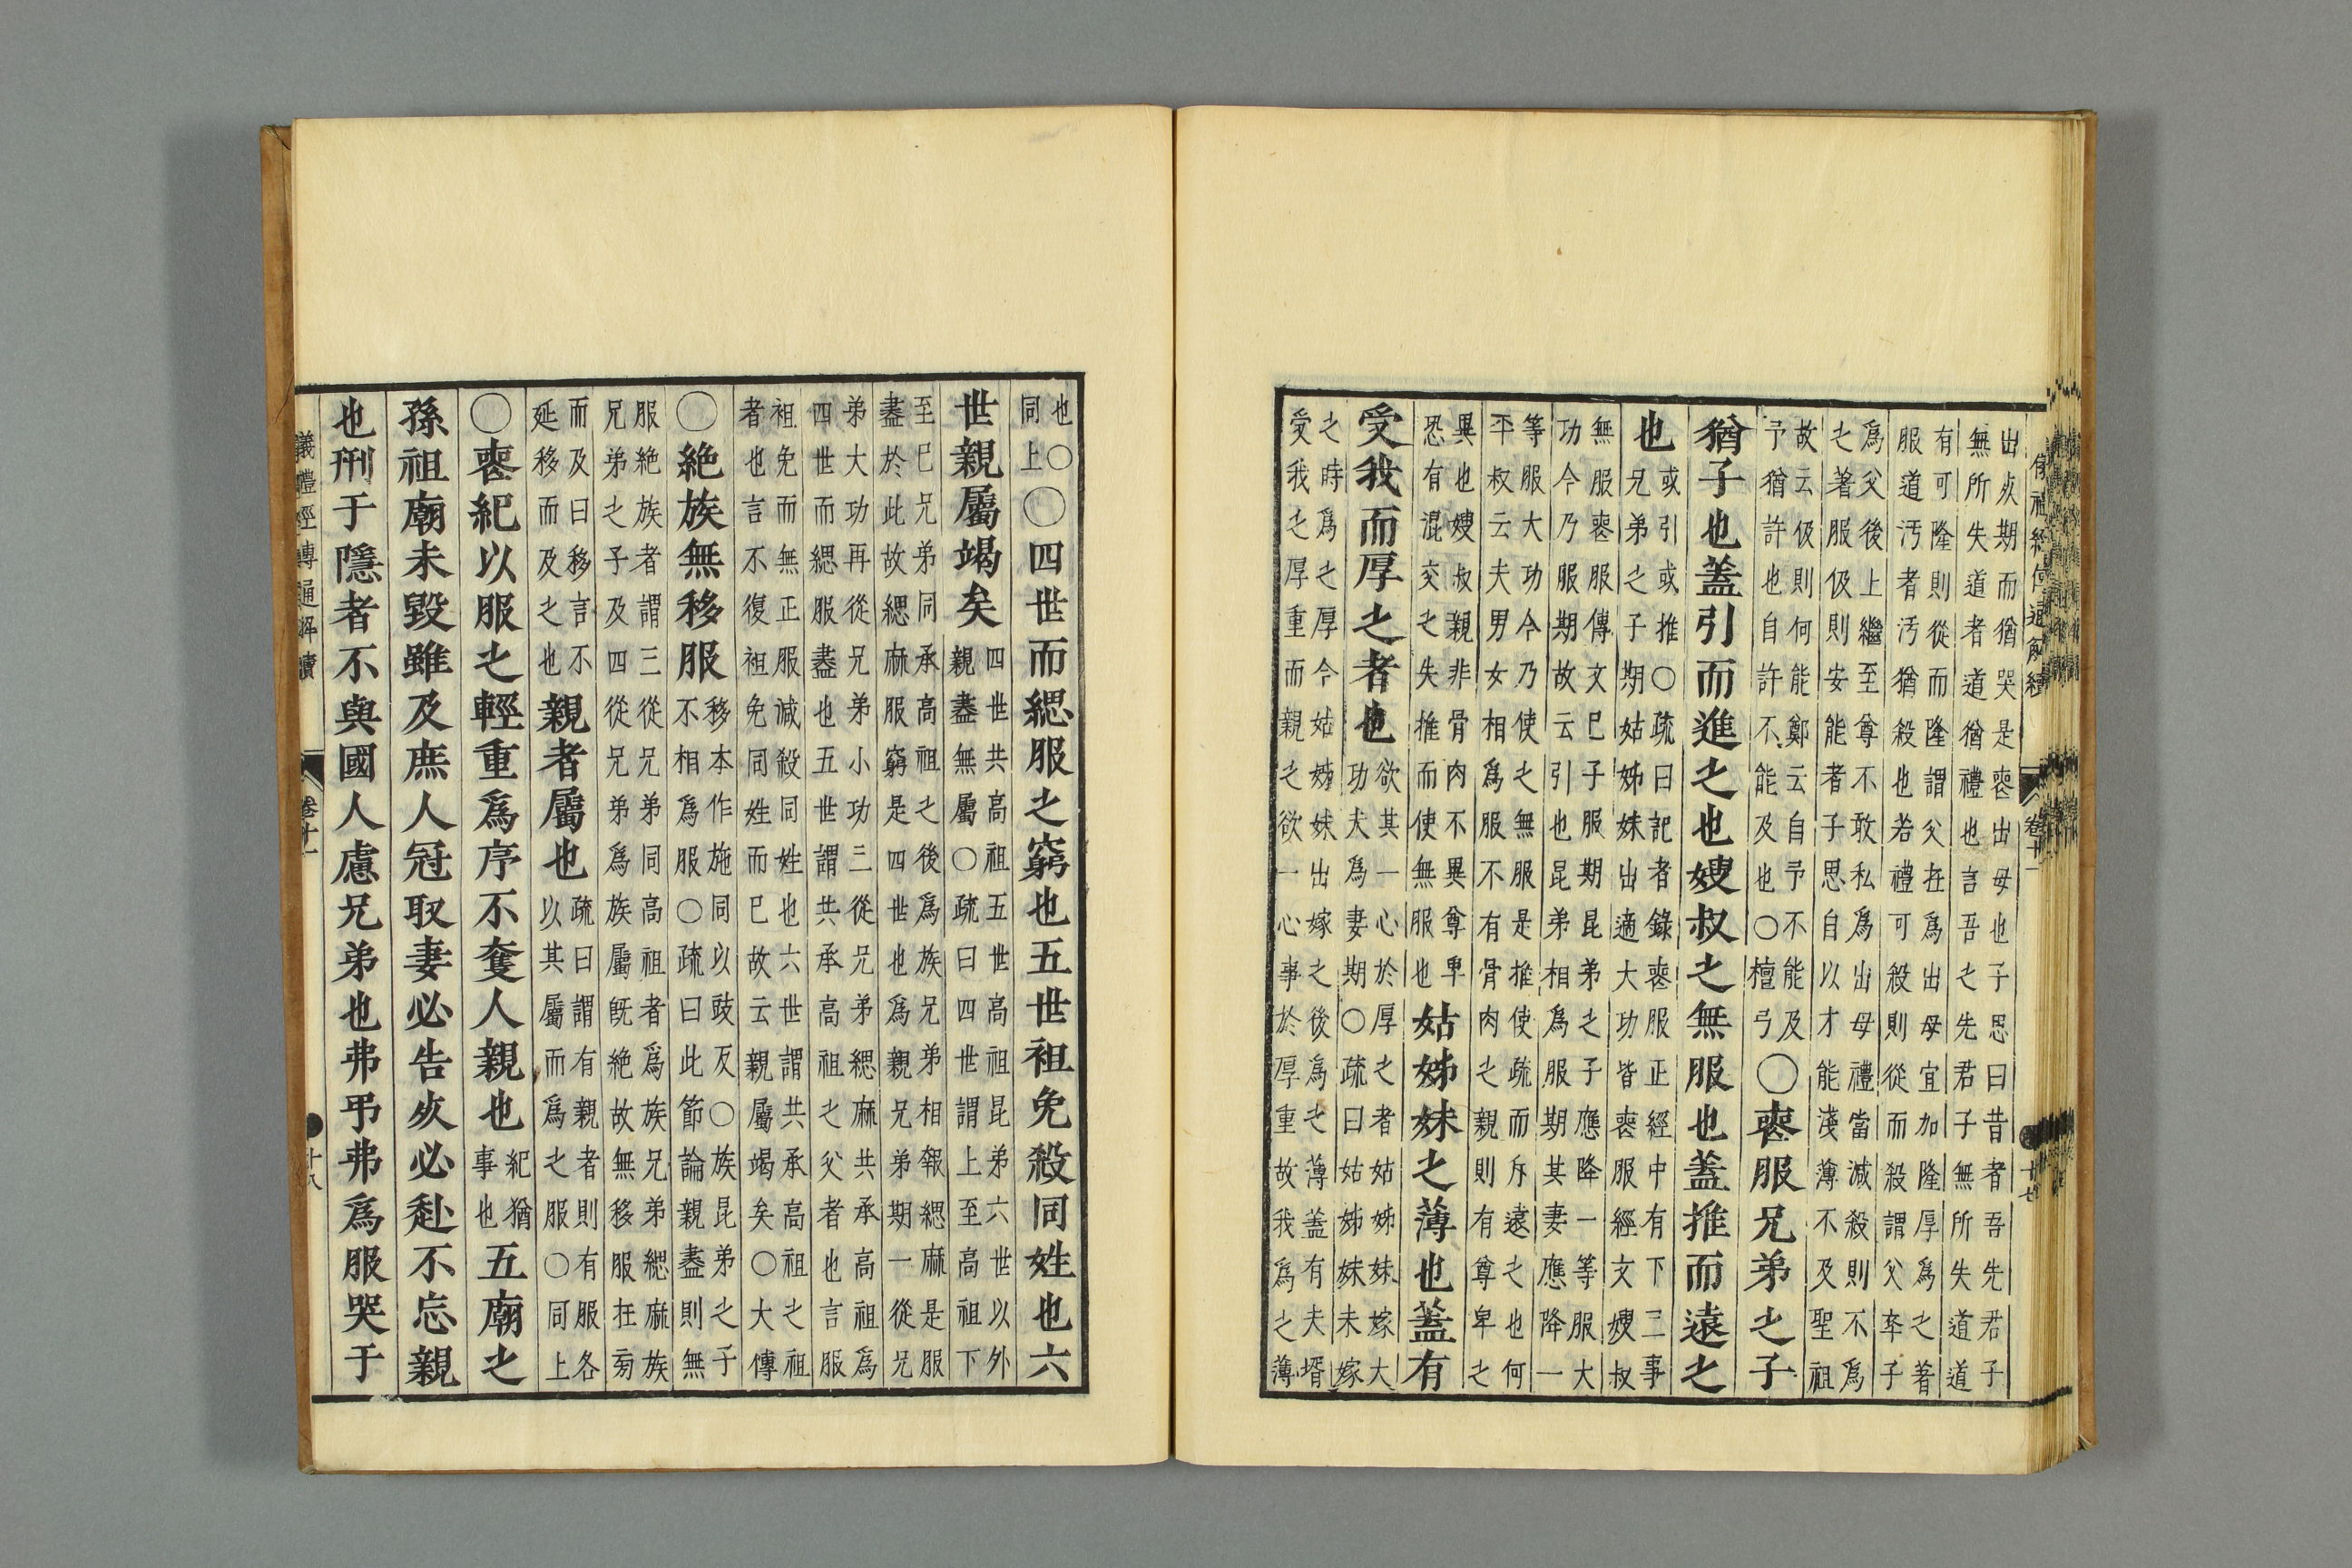 儀禮經傳通解續 卷十一 十七
出死期而猶哭是喪出母也子思曰昔者吾先君子
無所失道者道猶禮也言吾之先君子無所失道道
有可隆則從而隆謂父在爲出母宜加隆厚爲之著
服道汚者汚猶殺也若禮可殺則從而殺謂父卒子
爲父後上繼至尊不敢私爲出母禮當減殺則不爲
之著服伋則安能者子思自以才能淺薄不及聖祖
故云伋則何能鄭云自予不能及
予猶許也自許不能及也○檀弓
○喪服兄弟之子
猶子也蓋引而進之也嫂叔之無服也蓋推而遠之
也
或引或推○疏曰記者錄喪服正經中有下三事
兄弟之子期姑姊妹出適大功皆喪服經文嫂叔
無服喪服傳文巳子服期昆弟之子應降一等服大
功今乃服期故云引也昆弟相爲服期其妻應降一
等服大功今乃使之無服是推使疏而斥遠之也何
平叔云夫男女相爲服不有骨肉之親則有尊卑之
異也嫂叔親非骨肉不異尊卑
恐有混交之失推而使無服也
姑姊妹之薄也蓋有
受我而厚之者也
欲其一心於厚之者姑姊妹嫁大
功夫爲妻期○疏曰姑姊妹未嫁
之時爲之厚今姑姊妹出嫁之後爲之薄蓋有夫壻
受我之厚重而親之欲一心事於厚重故我爲之薄
也○
同上
○四世而緦服之窮也五世袒免殺同姓也六
世親屬竭矣
四世共高祖五世高祖昆弟六世以外
親盡無屬○疏曰四世謂上至高祖下
至巳兄弟同承高祖之後爲族兄弟相報緦麻是服
盡於此故緦麻服窮是四世也爲親兄弟期一從兄
弟大功再從兄弟小功三從兄弟緦麻共承高祖爲
四世而緦服盡也五世謂共承高祖之父者也言服
袒免而無正服減殺同姓也六世謂共承高祖之祖
者也言不復袒免同姓而巳故云親屬竭矣○大傳
○絶族無移服
移本作施同以豉反○族昆弟之子
不相爲服○疏曰此節論親盡則無
服絶族者謂三從兄弟同高祖者爲族兄弟緦麻族
兄弟之子及四從兄弟爲族屬旣絶故無移服在旁
而及曰移言不
延移而及之也
親者屬也
疏曰謂有親者則有服各
以其屬而爲之服○同上
○喪紀以服之輕重爲序不奪人親也
紀猶
事也
五廟之
孫祖廟未毀雖及庶人冠取妻必告死必赴不忘親
也刑于隱者不與國人慮兄弟也弗弔弗爲服哭于
儀禮經傳通解續 卷十一 十八